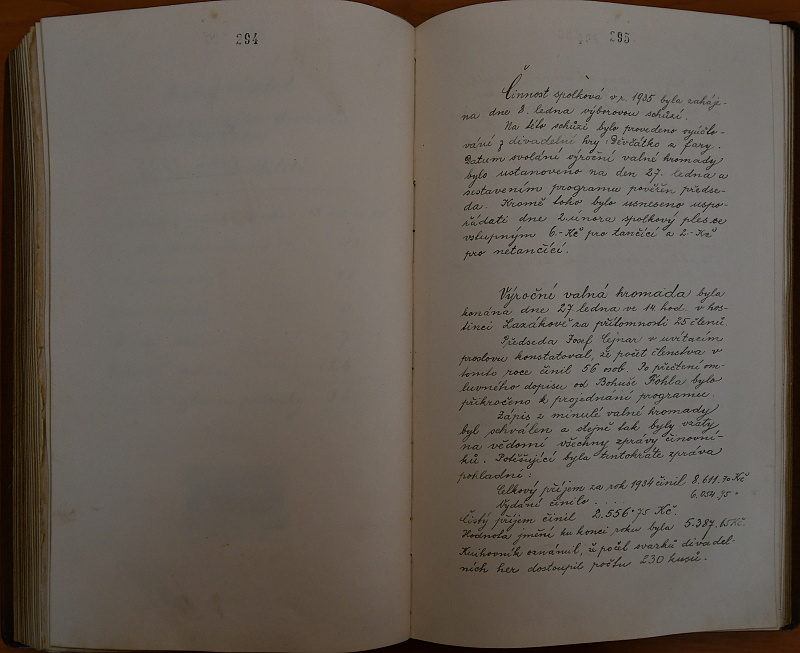 294
295
Činnost spolková v r. 1935 byla zaháje-
na dne 8. ledna výborovou schůzí.
Na této schůzi bylo provedeno vyúčto-
vání z divadelní hry: Děvčátko z fary.
Datum svolání výroční valné hromady
bylo ustanoveno na den 27. ledna a
sestavením programu pověřen předse-
da. Kromě toho bylo usneseno uspo-
řádati dne 2. února spolkový ples se
vstupným 6.- Kč pro tančící a 2.- Kč
pro netančící.
Výroční valná hromada byla
konána dne 27 ledna ve 14 hod. v hos-
tinci Lazákově za přítomnosti 25 členů.
Předseda Josef Cejnar v uvítacím
proslovu konstatoval, že počet členstva v
tomto roce činil 56 osob. Po přečtení om-
luvného dopisu od Bohuše Pohla bylo
přikročeno k projednání programu.
Zápis z minulé valné hromady
byl schválen a stejně tak byly vzaty
na vědomí všechny zprávy činovní-
ků. Potěšující byla tentokráte zpráva
pokladní:
Celkový příjem za rok 1934 činil 8.611.70 Kč
Vydání činilo . . . . 6.054.95 "
Čistý příjem činil 2.556.75 Kč.
Hodnota jmění ku konci roku byla 5.387.65 Kč.
Knihovník oznámil, že počet svazků divadel-
ních her dostoupil počtu 230 kusů.